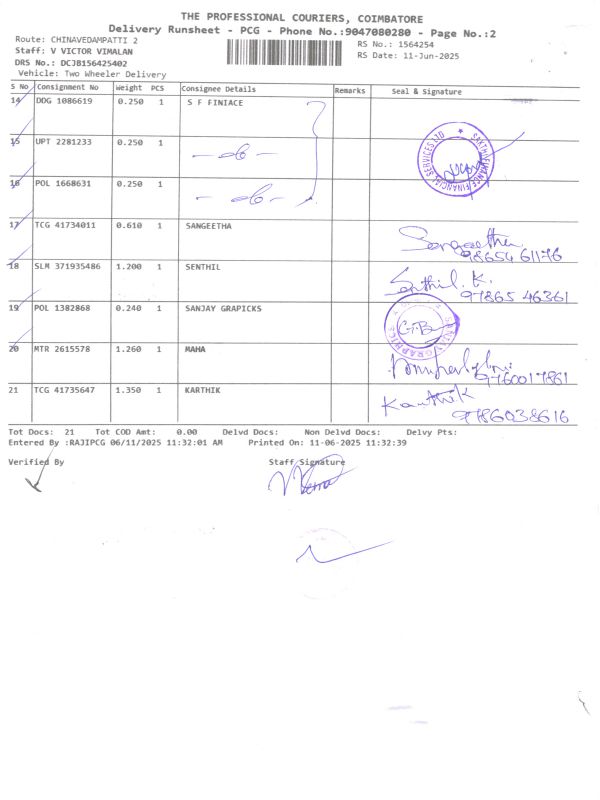 THE PROFESSIONAL COURIERS, COIMBATORE
Delivery Runsheet - PCG - Phone No.:9047080280 - Page No.:2
Route: CHINAVEDAMPATTI 2
Staff: V VICTOR VIMALAN
DRS No.: DCJB156425402
Vehicle: Two Wheeler Delivery
RS No.: 1564254
RS Date: 11-Jun-2025
S No Consignment No Weight PCS Consignee Details Remarks Seal & Signature
14 DDG 1086619 0.250 1 S F FINIACE
15 UPT 2281233 0.250 1 - do -
SAKTHI FINANCE FINANCIAL SERVICES LTD
16 POL 1668631 0.250 1 - do -
17 TCG 41734011 0.610 1 SANGEETHA Sangeetha
98654 61176
18 SLM 371935486 1.200 1 SENTHIL Senthil. K.
97865 46361
19 POL 1382868 0.240 1 SANJAY GRAPICKS
SANJAY GRAPHICS
20 MTR 2615578 1.260 1 MAHA
9760017861
21 TCG 41735647 1.350 1 KARTHIK Karthik
9786038616
Tot Docs: 21 Tot COD Amt: 0.00 Delvd Docs: Non Delvd Docs: Delvy Pts:
Entered By :RAJIPCG 06/11/2025 11:32:01 AM Printed On: 11-06-2025 11:32:39
Verified By Staff Signature